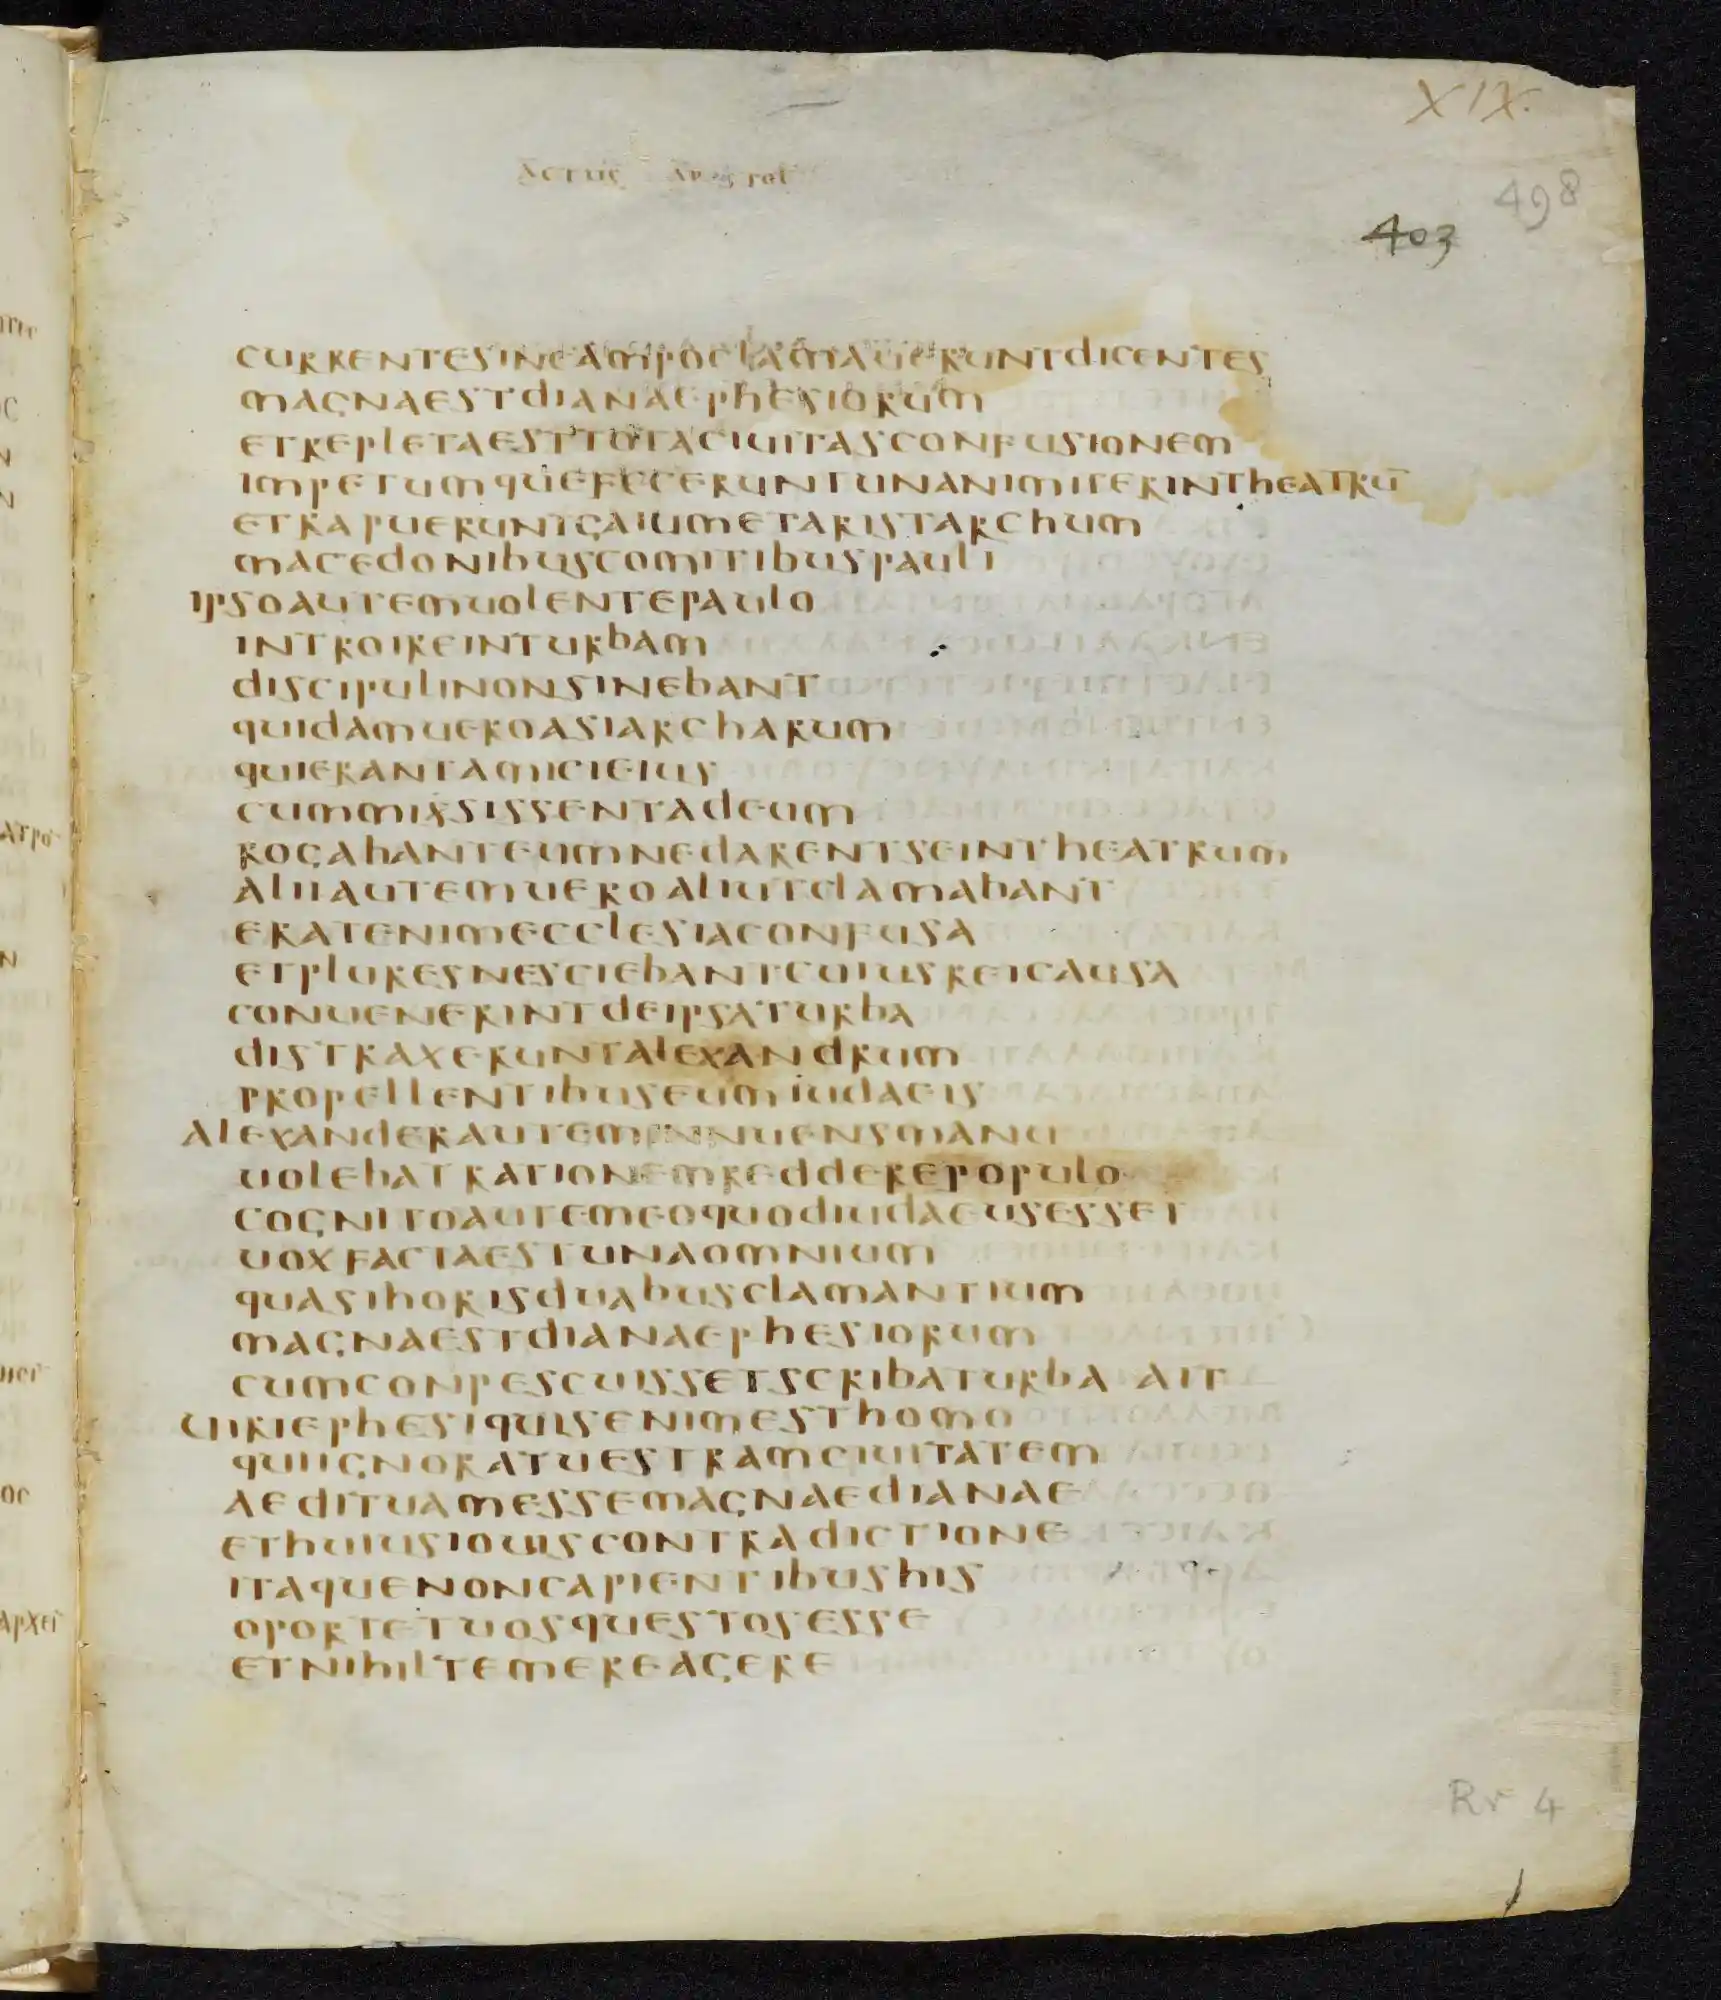 XIX.
actus apostol
498
403
currentesincampoclamaueruntdicentes
magnaestdianaephesiorum
etrepletaesttotaciuitasconfusionem
impetumquefeceruntunanimiterintheatrū
etrapueruntgaiumetaristarchum
macedonibuscomitibuspauli
ipsoautemuolentepaulo
introireinturbam
discipulinonsinebant
quidamueroasiarcharum
quierantamicieius
cummixsissentadeum
rogabanteumnedarentseintheatrum
aliiautemueroaliutclamabant
eratenimecclesiaconfusa
etpluresnesciebantcuiusreicausa
conuenerintdeipsaturba
distraxeruntalexandrum
propellentibuseumiudaeis
alexanderauteminnuensmanu
uolebatrationemredderepopulo
cognitoautemeoquodiudaeusesset
uoxfactaestunaomnium
quasihorisduabusclamantium
magnaestdianaephesiorum
cumconpescuissetscribaturba ait
uiriephesiquisenimesthomo
quiignoratuestramciuitatem
aedituamessemagnaedianae
ethuiusiouiscontradictione
itaquenoncapientibushis
oportetuosquestosesse
etnihiltemereagere
Rr 4